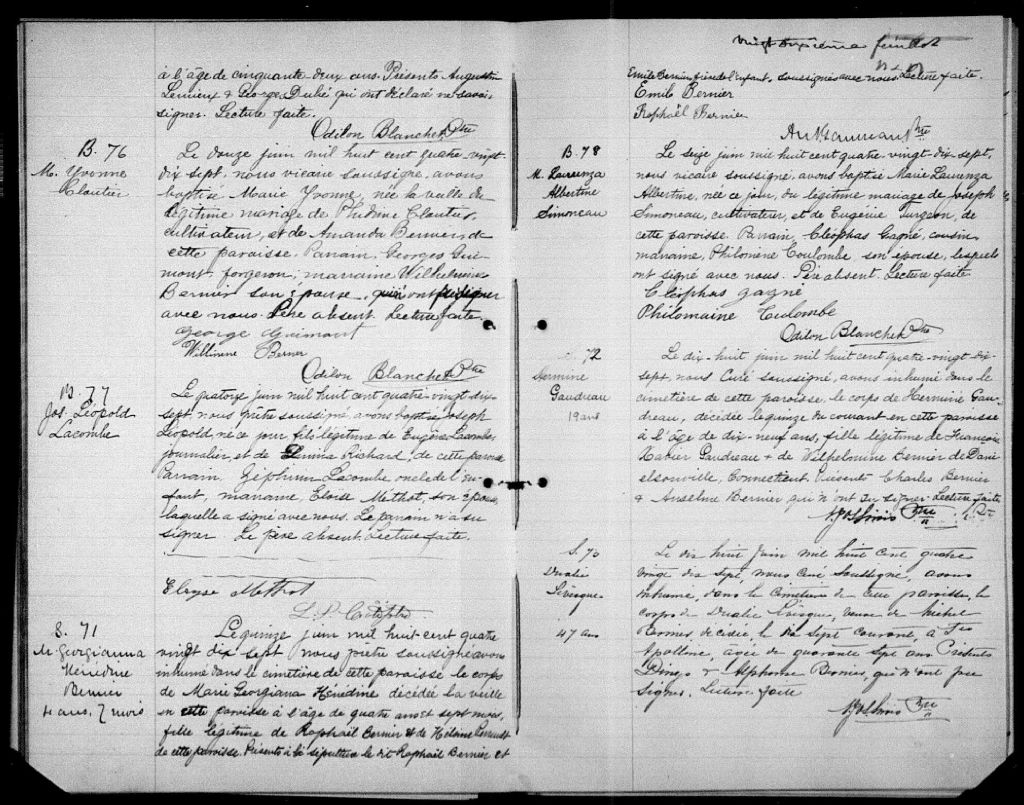 à l'âge de cinquante-deux ans. Présents Augustin
Lemieux & George Dubé qui ont déclaré ne savoir
signer. Lecture faite.
Odilon Blanchet Ptre
B. 76
M. Yvonne
Cloutier
Le douze juin mil huit cent quatre-vingt-
dix sept, nous vicaire soussigné, avons
baptisé Marie Yvonne, née la veille du
légitime mariage de Cloutier,
cultivateur, et de Amanda Bernier, de
cette paroisse. Parrain, Georges Gui-
mont, forgeron; marraine Wilhelmine
Bernier son épouse, qui ont signer
avec nous. Père absent. Lecture faite.
George Guimont
Bernier
Odilon Blanchet Ptre
B. 77
Jos. Léopold
Lacombe
Le quatorze juin mil huit cent quatre-vingt-dix-
sept nous prêtre soussigné, avons baptisé Joseph
Léopold, né ce jour, fils légitime de Eugène Lacombe
journalier et de Elmira Richard, de cette paroisse
Parrain, Zéphirin Lacombe oncle de l'en-
fant, marraine, Eloïse Methot, son épouse
laquelle a signé avec nous. Le parrain n'a su
signer. Le père absent. Lecture faite.
Eloyse Methot
S. 71
M. Georgianna
Hénédine
Bernier
4 ans, 7 mois
Le quinze juin mil huit cent quatre
vingt dix sept nous prêtre soussigné avons
inhumé dans le cimetière de cette paroisse le corps
de Marie Georgiana Hénédine décédée la veille
en cette paroisse à l'âge de quatre ans et sept mois,
fille légitime de Raphaël Bernier & de Helène
de cette paroisse. Présents à la sépulture le dit Raphaël Bernier et
vingt deuxième feuillet
Emile Bernier frère de l'enfant, soussignés avec nous. Lecture faite.
Emile Bernier
Raphaël Bernier
Ptre
B. 78
M. Laurenza
Albertine
Simoneau
Le seize juin mil huit cent quatre-vingt-dix-sept,
nous vicaire soussigné, avons baptisé Marie Laurenza
Albertine, née ce jour, du légitime mariage de Joseph
Simoneau, cultivateur, et de Eugénie Turgeon, de
cette paroisse. Parrain, Cléophas Gagné, cousin
marraine, Philomène Coulombe son épouse, lesquels
ont signé avec nous. Père absent. Lecture faite
Cléophas gagné
Philomaine Culombe
Odilon Blanchet Ptre
72
Hermine
Gaudreau
19 ans
Le dix-huit juin mil huit cent quatre-vingt-dix-
sept, nous Curé soussigné, avons inhumé dans le
cimetière de cette paroisse, le corps de Hermine Gau-
dreau, décédée le quinze du courant en cette paroisse
à l'âge de dix-neuf ans, fille légitime de François
Xavier Gaudreau & de Wilhelmine Bernier de Dani-
elsonville, Connecticut. Présents Charles Bernier
& Anselme Bernier qui n'ont su signer. Lecture faite
Ptre
S. 73
Lévesque
47 ans
Le dix huit Juin mil huit cent quatre
vingt dix sept, nous Curé soussigné, avons
inhumé, dans le cimetière de cette paroisse, le
corps de Lévesque, veuve de Michel
Bernier, le dix sept courant, à
Apolline, agée de quarante sept ans. Présents
& Alphonse Bernier, qui n'ont pu
signer. Lecture faite
Ptre